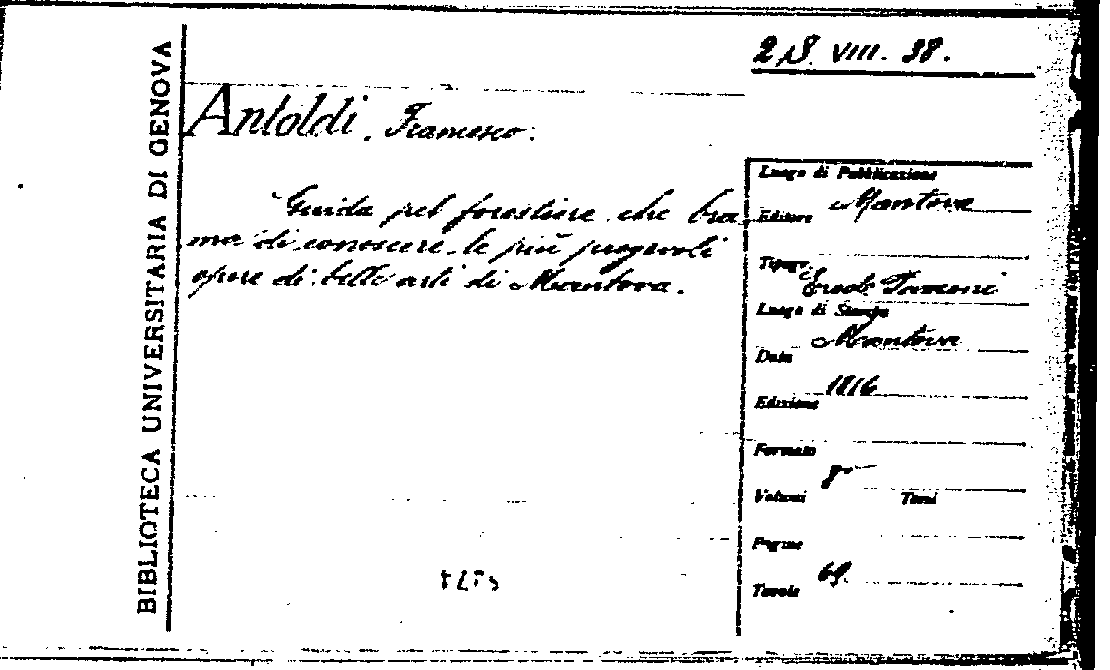 2 S. VIII. 38.
BIBLIOTECA UNIVERSITARIA DI GENOVA
Antoldi, Francesco.
Guida pel forestiere che bra
ma di conoscere le più pregevoli
opere di belle arti di Mantova.
Luogo di Pubblicazione
Mantova
Editore
Tipogr.
Luogo di Stampa
Mantova
Data
1816
Edizione
Formato
8°
Volumi Tomi
Pagine
69.
Tavole